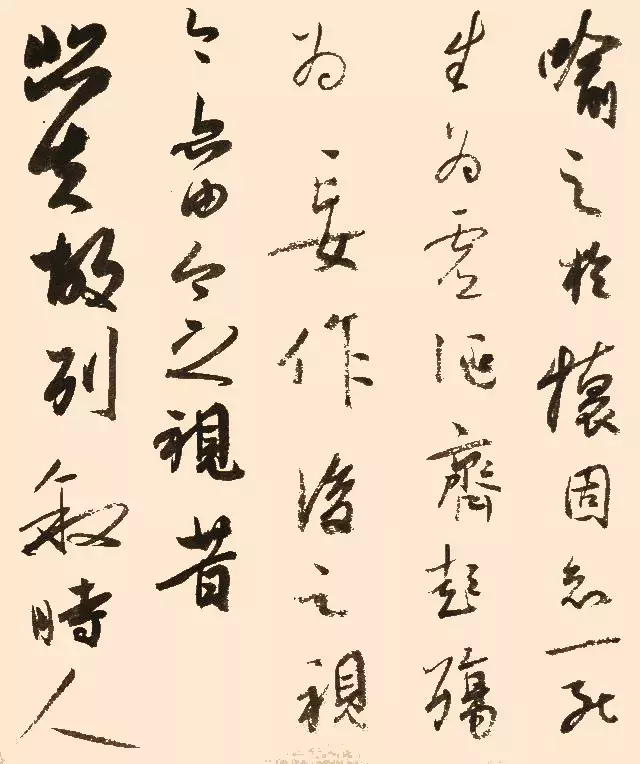 喻之於懷固知一死
生為虛誕齊彭殤
為妄作後之視
今亦由今之視昔
悲夫故列敘時人